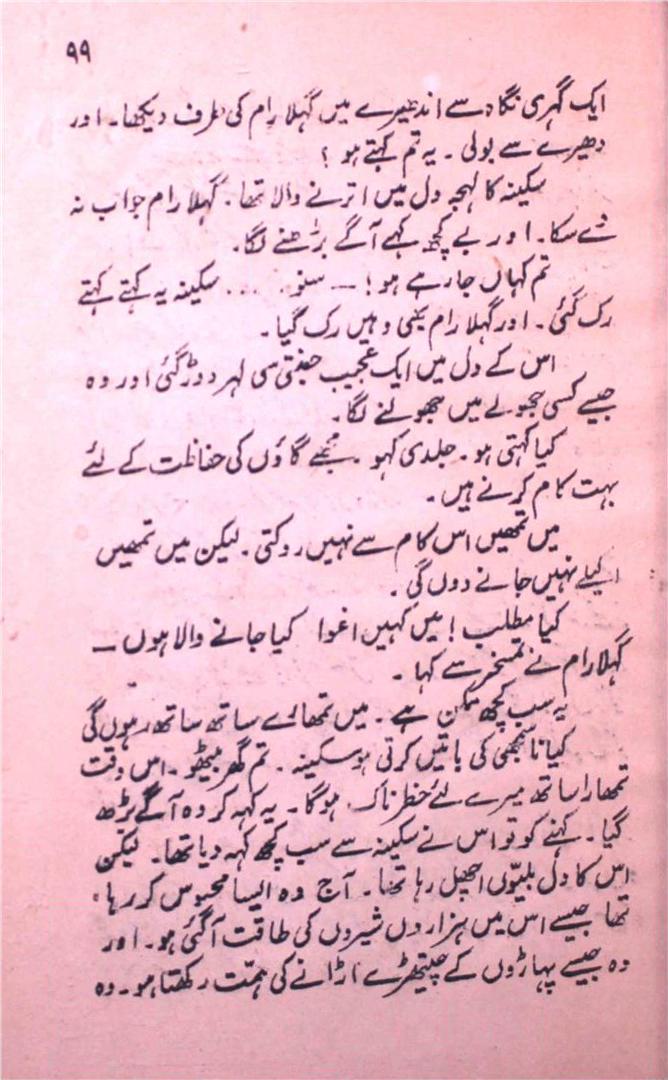 ۹۹
ایک گہری نگاہ سے اندھیرے میں گہلا رام کی طرف دیکھا۔ اور
دھیرے سے بولی۔ یہ تم کہتے ہو؟
سکینہ کا لہجہ دل میں اترنے والا تھا۔ گہلا رام جواب نہ
دے سکا۔ اور بے کچھ کہے آگے بڑھنے لگا۔
تم کہاں جا رہے ہو! — سنو. . . . سکینہ یہ کہتے کہتے
رک گئی۔ اور گہلا رام بھی وہیں رک گیا۔
اس کے دل میں ایک عجیب جنبتی سی لہر دوڑ گئی اور وہ
جیسے کسی جھولے میں جھولنے لگا۔
کیا کہتی ہو۔ جلدی کہو۔ مجھے گاؤں کی حفاظت کے لئے
بہت کام کرنے ہیں۔
میں تمھیں اس کام سے نہیں روکتی۔ لیکن میں تمھیں
اکیلے نہیں جانے دوں گی۔
کیا مطلب! میں کہیں اغوا کیا جانے والا ہوں —
گہلا رام نے تمسخر سے کہا۔
یہ سب کچھ ممکن ہے۔ میں تمھارے ساتھ ساتھ رہوں گی
کیا ناسمجھی کی باتیں کرتی ہو سکینہ۔ تم گھر بیٹھو۔ اس وقت
تمھارا ساتھ میرے لئے خطرناک ہوگا۔ یہ کہہ کر وہ آگے بڑھ
گیا۔ کہنے کو تو اس نے سکینہ سے سب کچھ کہہ دیا تھا۔ لیکن
اس کا دل بلیّوں اچھل رہا تھا۔ آج وہ ایسا محسوس کر رہا
تھا جیسے اس میں ہزاروں شیروں کی طاقت آ گئی ہو۔ اور
وہ جیسے پہاڑوں کے چیتھڑے اڑانے کی ہمّت رکھتا ہو۔ وہ